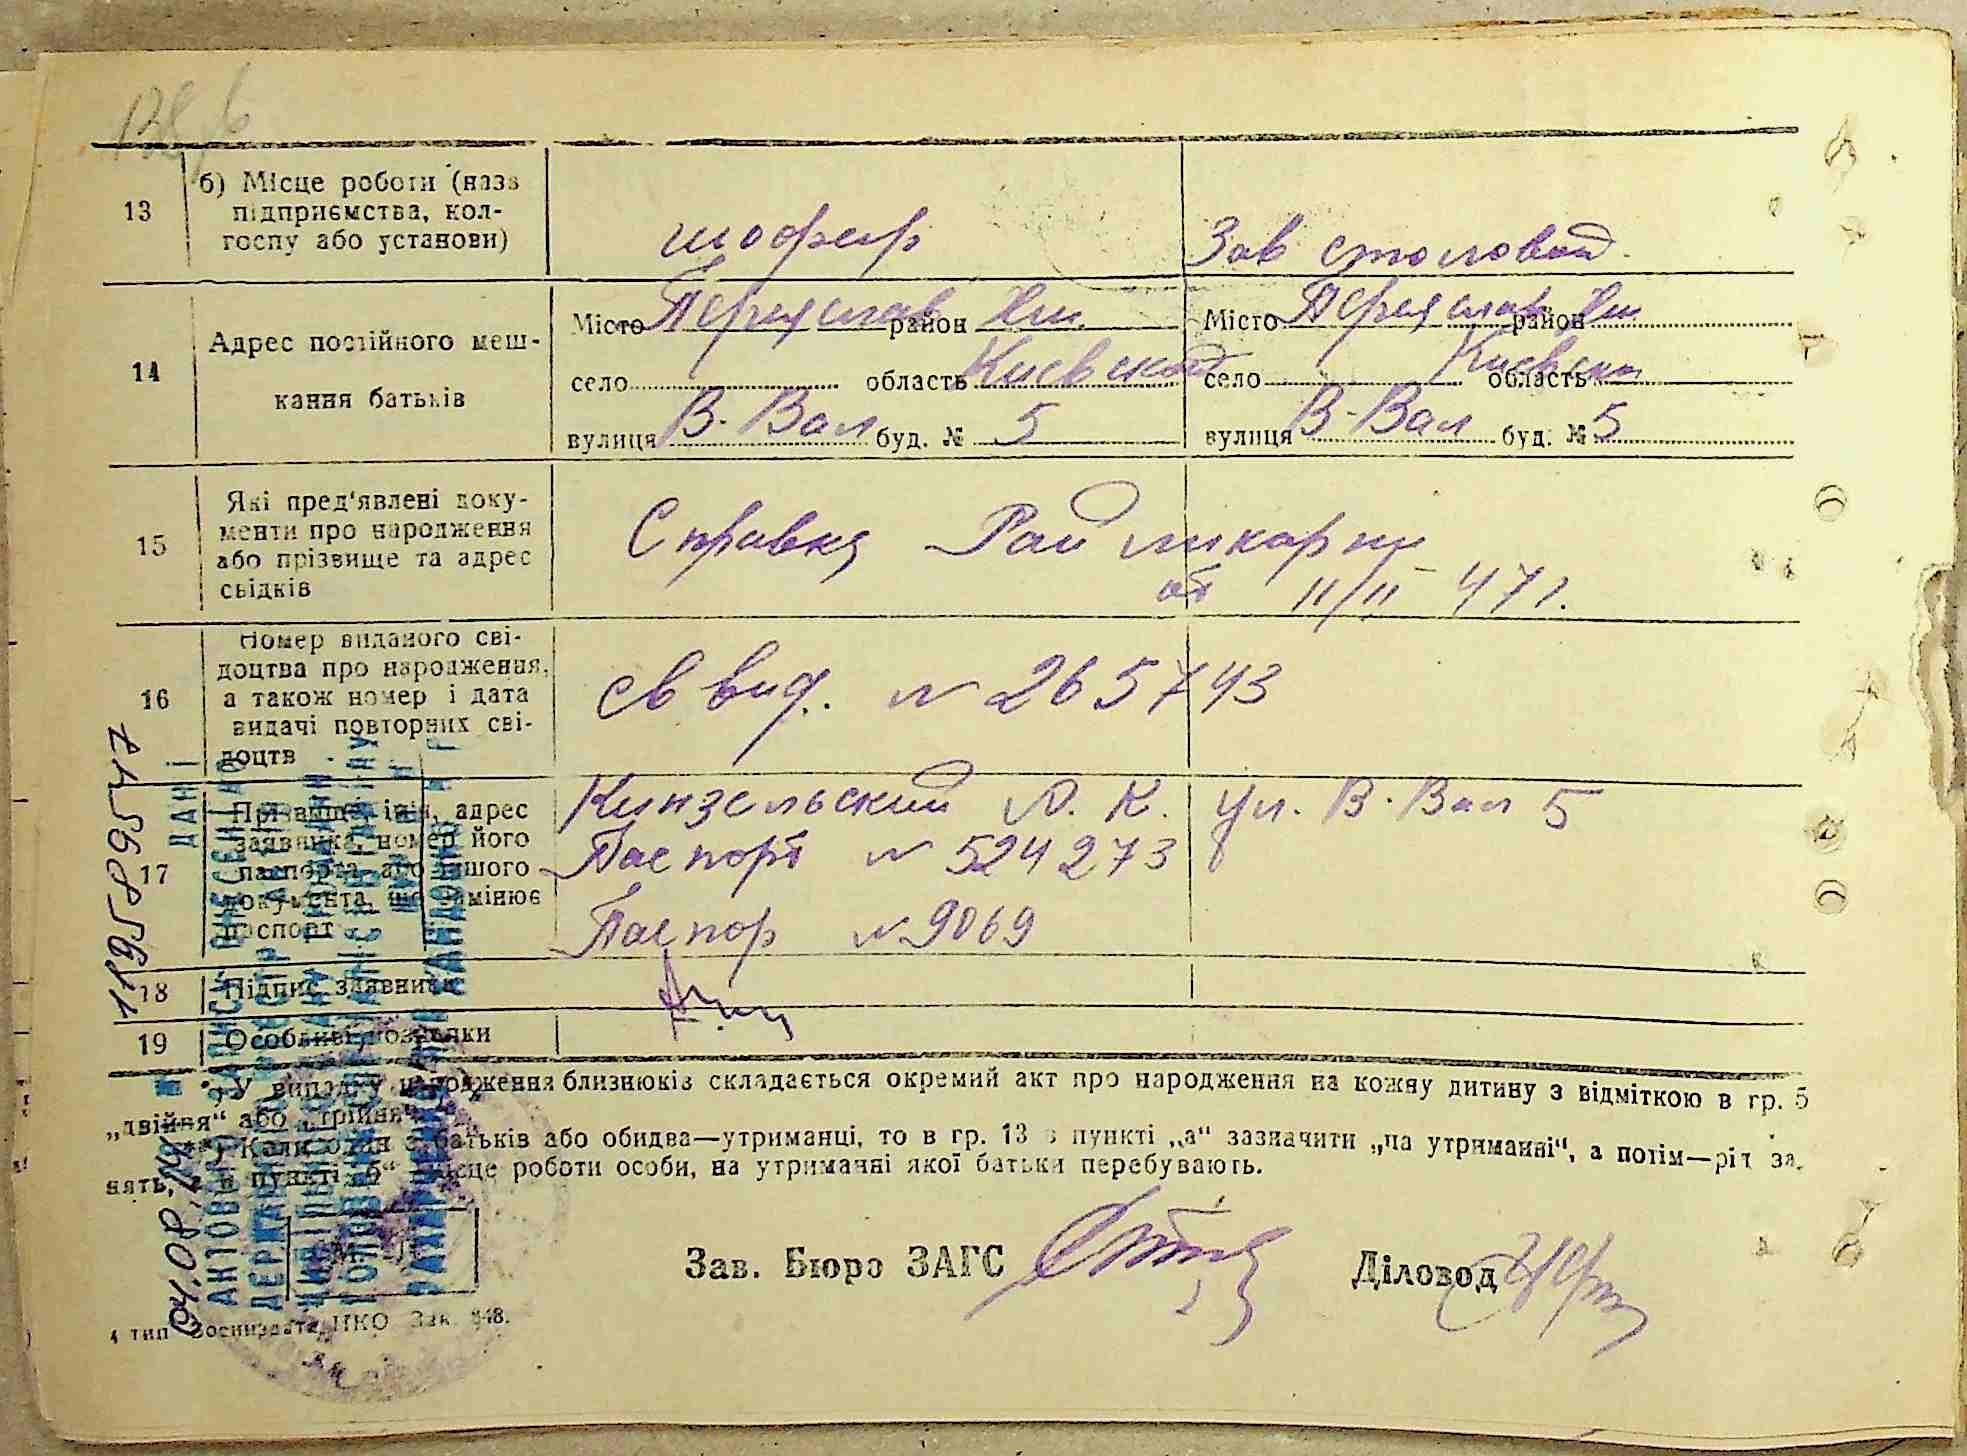 13
б) Місце роботи (назв
підприємства, кол-
госпу або установи)
шофер
Зав столовой
14
Адрес постійного меш-
кання батьків
Місто Переяслав район Хм.
село область Киевской
вулиця В-Вал буд. № 5
Місто Переяслав район Хм
село область Киевск
вулиця В-Вал буд. № 5
15
Які пред'явлені доку-
менти про народження
або прізвище та адрес
свідків
Справка Райликарни
от 11/II-47г.
16
Номер виданого сві-
доцтва про народження,
а також номер і дата
видачі повторних сві-
доцтв
св вид. № 265743
17
Прізвище, ім'я, адрес
заявника, номер його
паспорта або іншого
документа, що замінює
паспорт
Кинзельский А. К. ул. В-Вал 5
Паспорт № 524273
Паспор № 9069
18
Підпис заявника
19
Особливі позначки
* У випадку народження близнюків складається окремий акт про народження на кожну дитину з відміткою в гр. 5
„двійня“ або „трійня“
**) Коли один з батьків або обидва—утриманці, то в гр. 13 в пункті „а“ зазначити „на утриманні“, а потім—рід за-
нять, а в пункті „б“ місце роботи особи, на утриманні якої батьки перебувають.
Зав. Бюро ЗАГС
Діловод
4 тип Воениздата НКО Зак. 848.
04.08.14